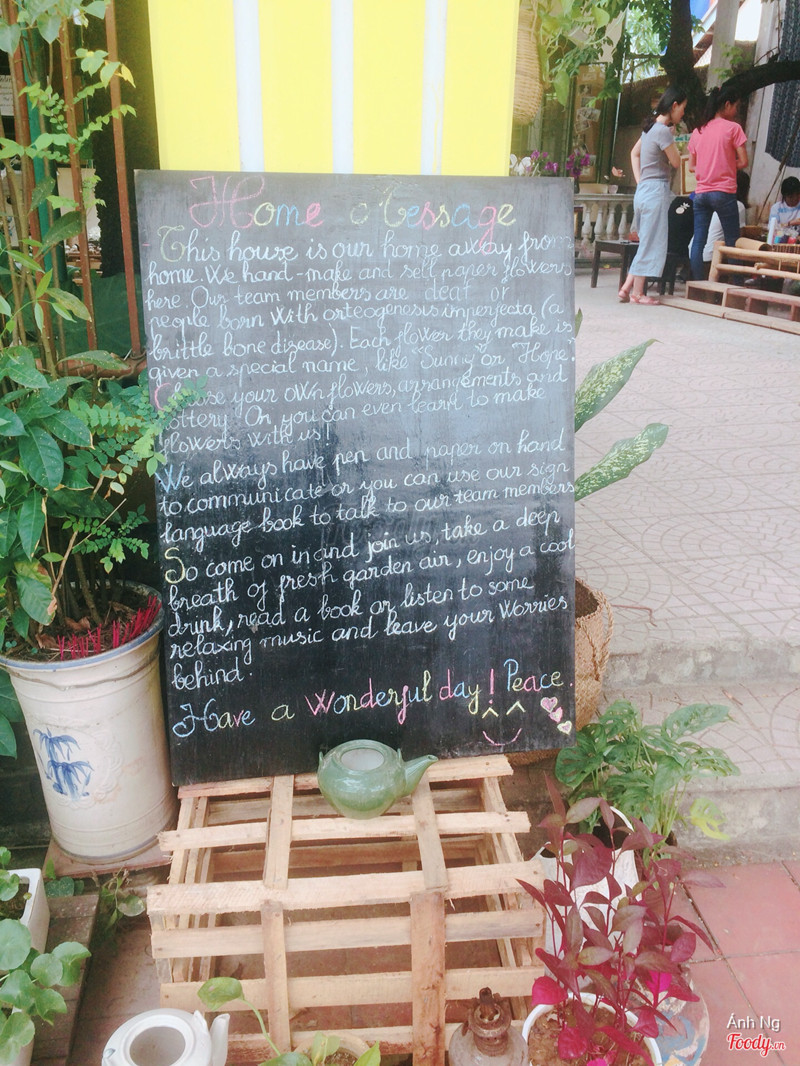 Home Message
This house is our home away from
home. We hand-make and sell paper flowers
here. Our team members are deaf or
people born with osteogenesis imperjecta (a
brittle bone disease). Each flower they make is
given a special name, like "Sunny" or "Hope".
Choose your own flowers, arrangements and
pottery. Or you can even learn to make
flowers with us!
We always have pen and paper on hand
to communicate or you can use our sign
language book to talk to our team members
So come on in and join us, take a deep
breath of fresh garden air, enjoy a cool
drink, read a book or listen to some
relaxing music and leave your worries
behind.
Have a wonderful day! Peace.
Ánh Ng
Foody.vn